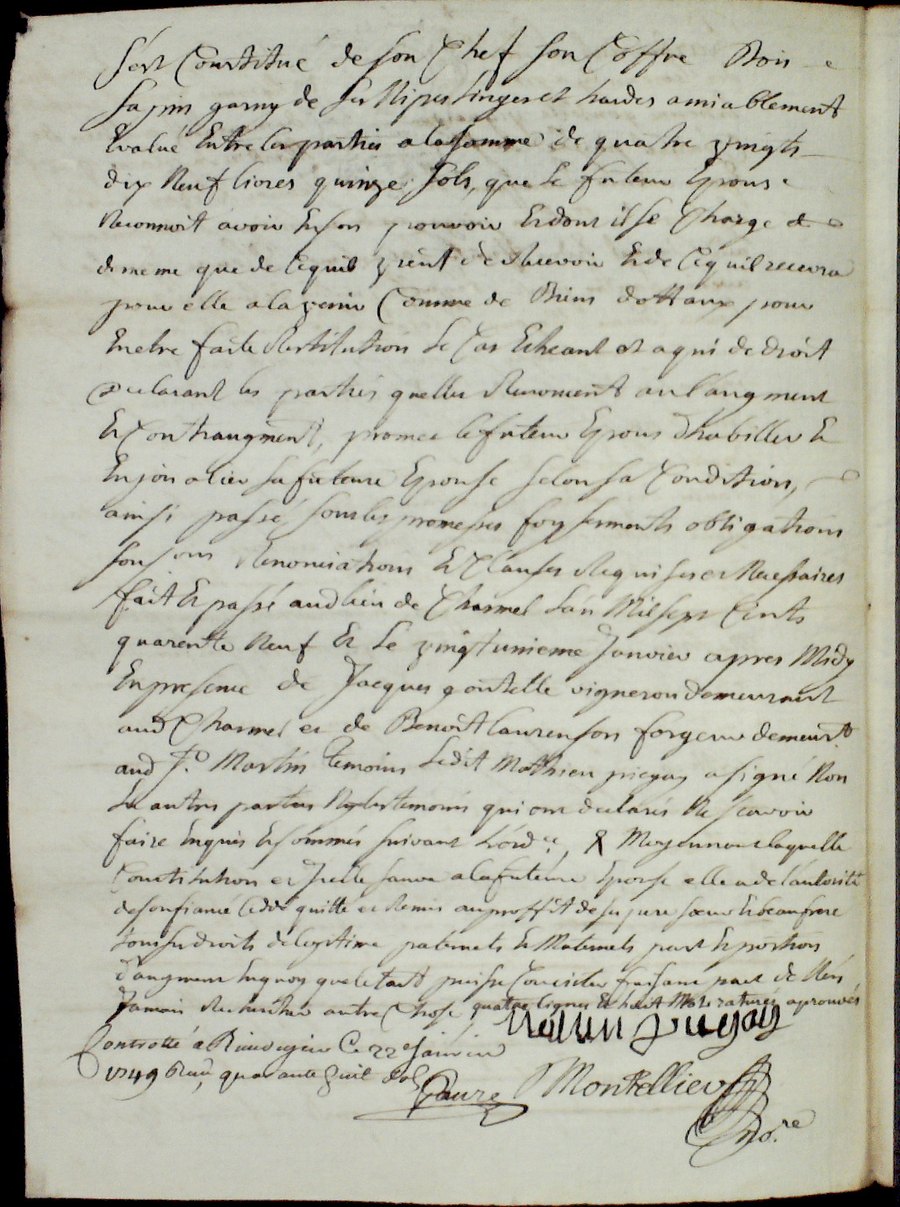 s'est Constitué de son Chef son Coffre Bois
sapin garny de ses Nipes linges et hardes amiablement
Evalué Entre les parties a la somme de quatre vingts
dix Neuf livres quinze sols, que le futeur Epous
Reconnoit avoir En son pouvoir Et dont il se Charge
de meme que de Ce quil vient de Recevoir Et de Ce quil recevra
pour elle a lavenir Comme de Biens dottaux pour
En etre faite Restitution le Cas Echeant et a qui de droit
declarant les parties quelles Renoncent a laugment
Et Contraugment, promet le futeur Epous dhabiller Et
Enjoialier sa futeure Epouse selon sa Condition,
ainsi passé sous les promesses foy serments obligations
Renonciations Et Clauses Requises et Necessaires
fait Et passé audlieu de Charmel L'an Mil sept Cents
quarente Neuf Et le vingtunieme Janvier apres Midy
En presence de Jacques vigneron demeurant
aud Charmel et de Benoit laurenson forgeur demeurt
aud St Martin temoins ledit Mathieu a signé Non
les autres parties Ny les temoins qui ont declarés Ne scavoir
faire Enquis Et sommés suivant L'ordce, Moyennant laquelle
Constitution et Icelle sauve a la futeure Epouse elle a de l'autorité
de son fiancé Cedé quitté et Remis au proffit de sa sœur Et beaufrere
tous ses droits de legitime paternels Et Maternels part Et portion
d'augment En quoy que le tout puisse Consister sans
Jamais Rechercher autre Chose quatre lignes Et huit Mots raturés aprouvés
Controllé a Ce 22e Janvier
1749 Reçu quarante huit sols
Faure Montellier
nore